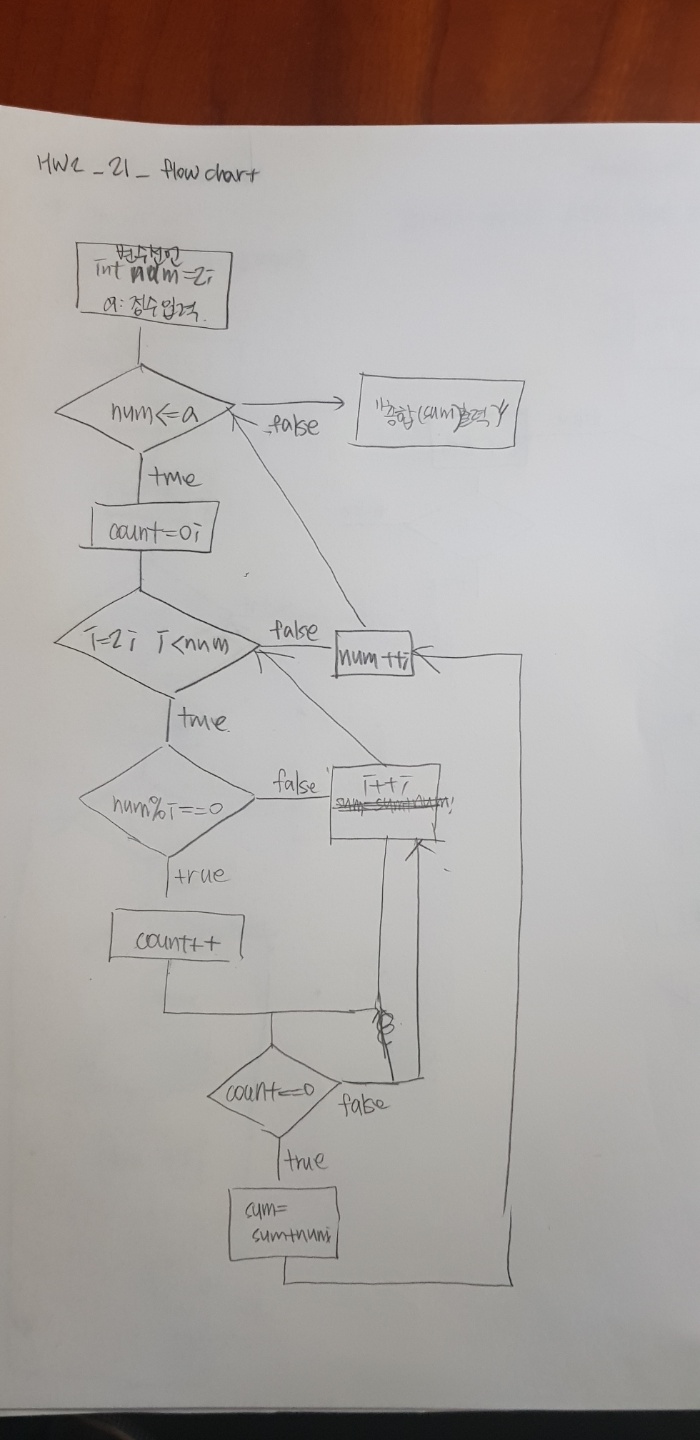 HW2_21_ flow chart
변수선언
int num=2;
a: 정수입력.
num<=a
false
"총합(sum)출력"
true
count=0;
i=2; i<num
false
num++;
true
num%i==0
false
i++;
sum=sum+num;
true
count++
count==0
false
true
sum=
sum+num;